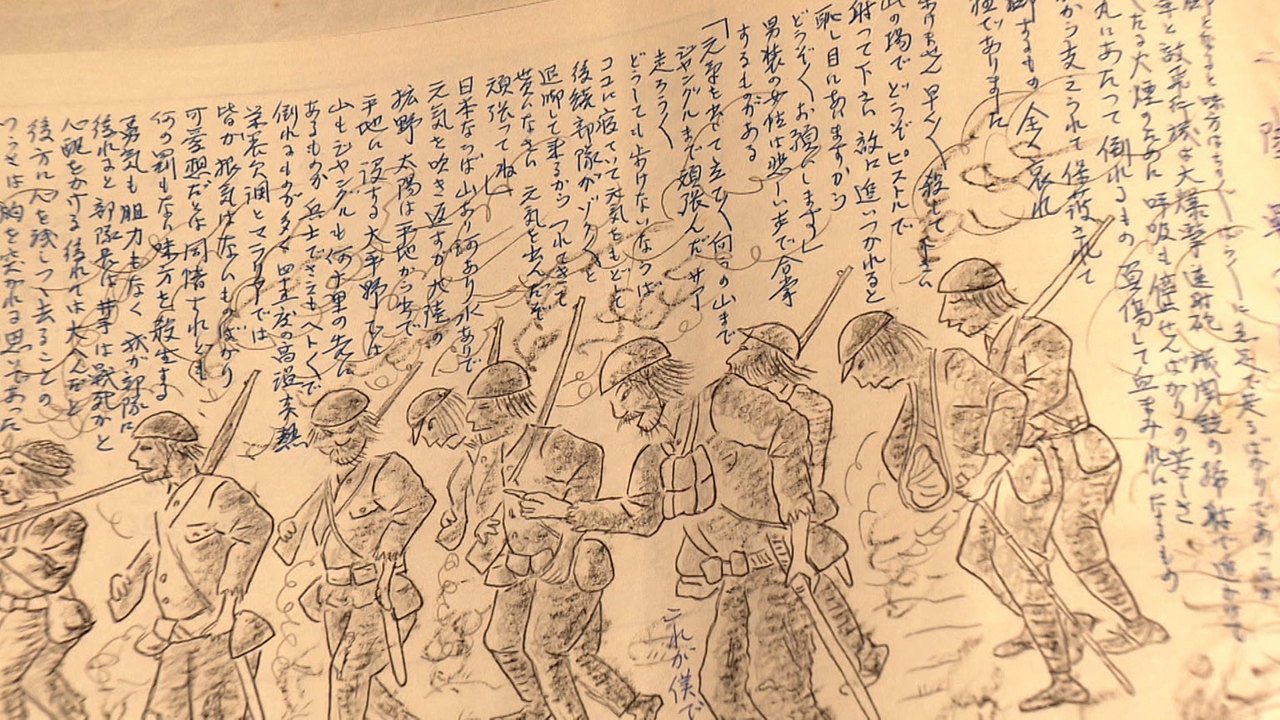 敵飛行機は大爆撃速射砲、機関銃の掃射で
たる火煙のために 呼吸も停止せんばかりの苦しさ
丸にあたって倒れるもの 負傷して血まみれになるもの
から支えられて保護されて
するもの 全く哀れ
極でありました
歩けません 早く〱殺して下さい
此の場でどうぞピストルで
射って下さい 敵に追いつかれると
恥し目にあいますから
どうぞ〱お願いします」
男装の女性は悲しい声で合掌
するものがある
「元気を出して立て〱向うの山まで
ジャングルまで頑張んだ サアー
走ろう〱
どうしても歩けないならば
ココに寝ていて元気をもどして
後続部隊がゾク〱と
退却して来るから つれてきて
貰いなさい 元気を出んだぞ
頑張ってね」
日本ならば山あり河あり水ありで
元気を吹き返すが大陸の
拡野 太陽は平地から出で
平地に没する大平野では
山もジャングルも何十里の先に
あるものか 兵士でさえもヘト〱で
倒れるものが多く 四十五度の高温炎熱
栄養欠調とマラリヤでは
皆が根気はないものばかり
可愛想だとは同情すれども
何の罪もない味方を殺生する
勇気も胆力もなく 我が部隊に
後れると部隊長は 井手は戦死かと
心配をかける 後れては大へんだと
後方に心を残しつ去ることの
つらさは胸を突かれる思いであった
これが僕で